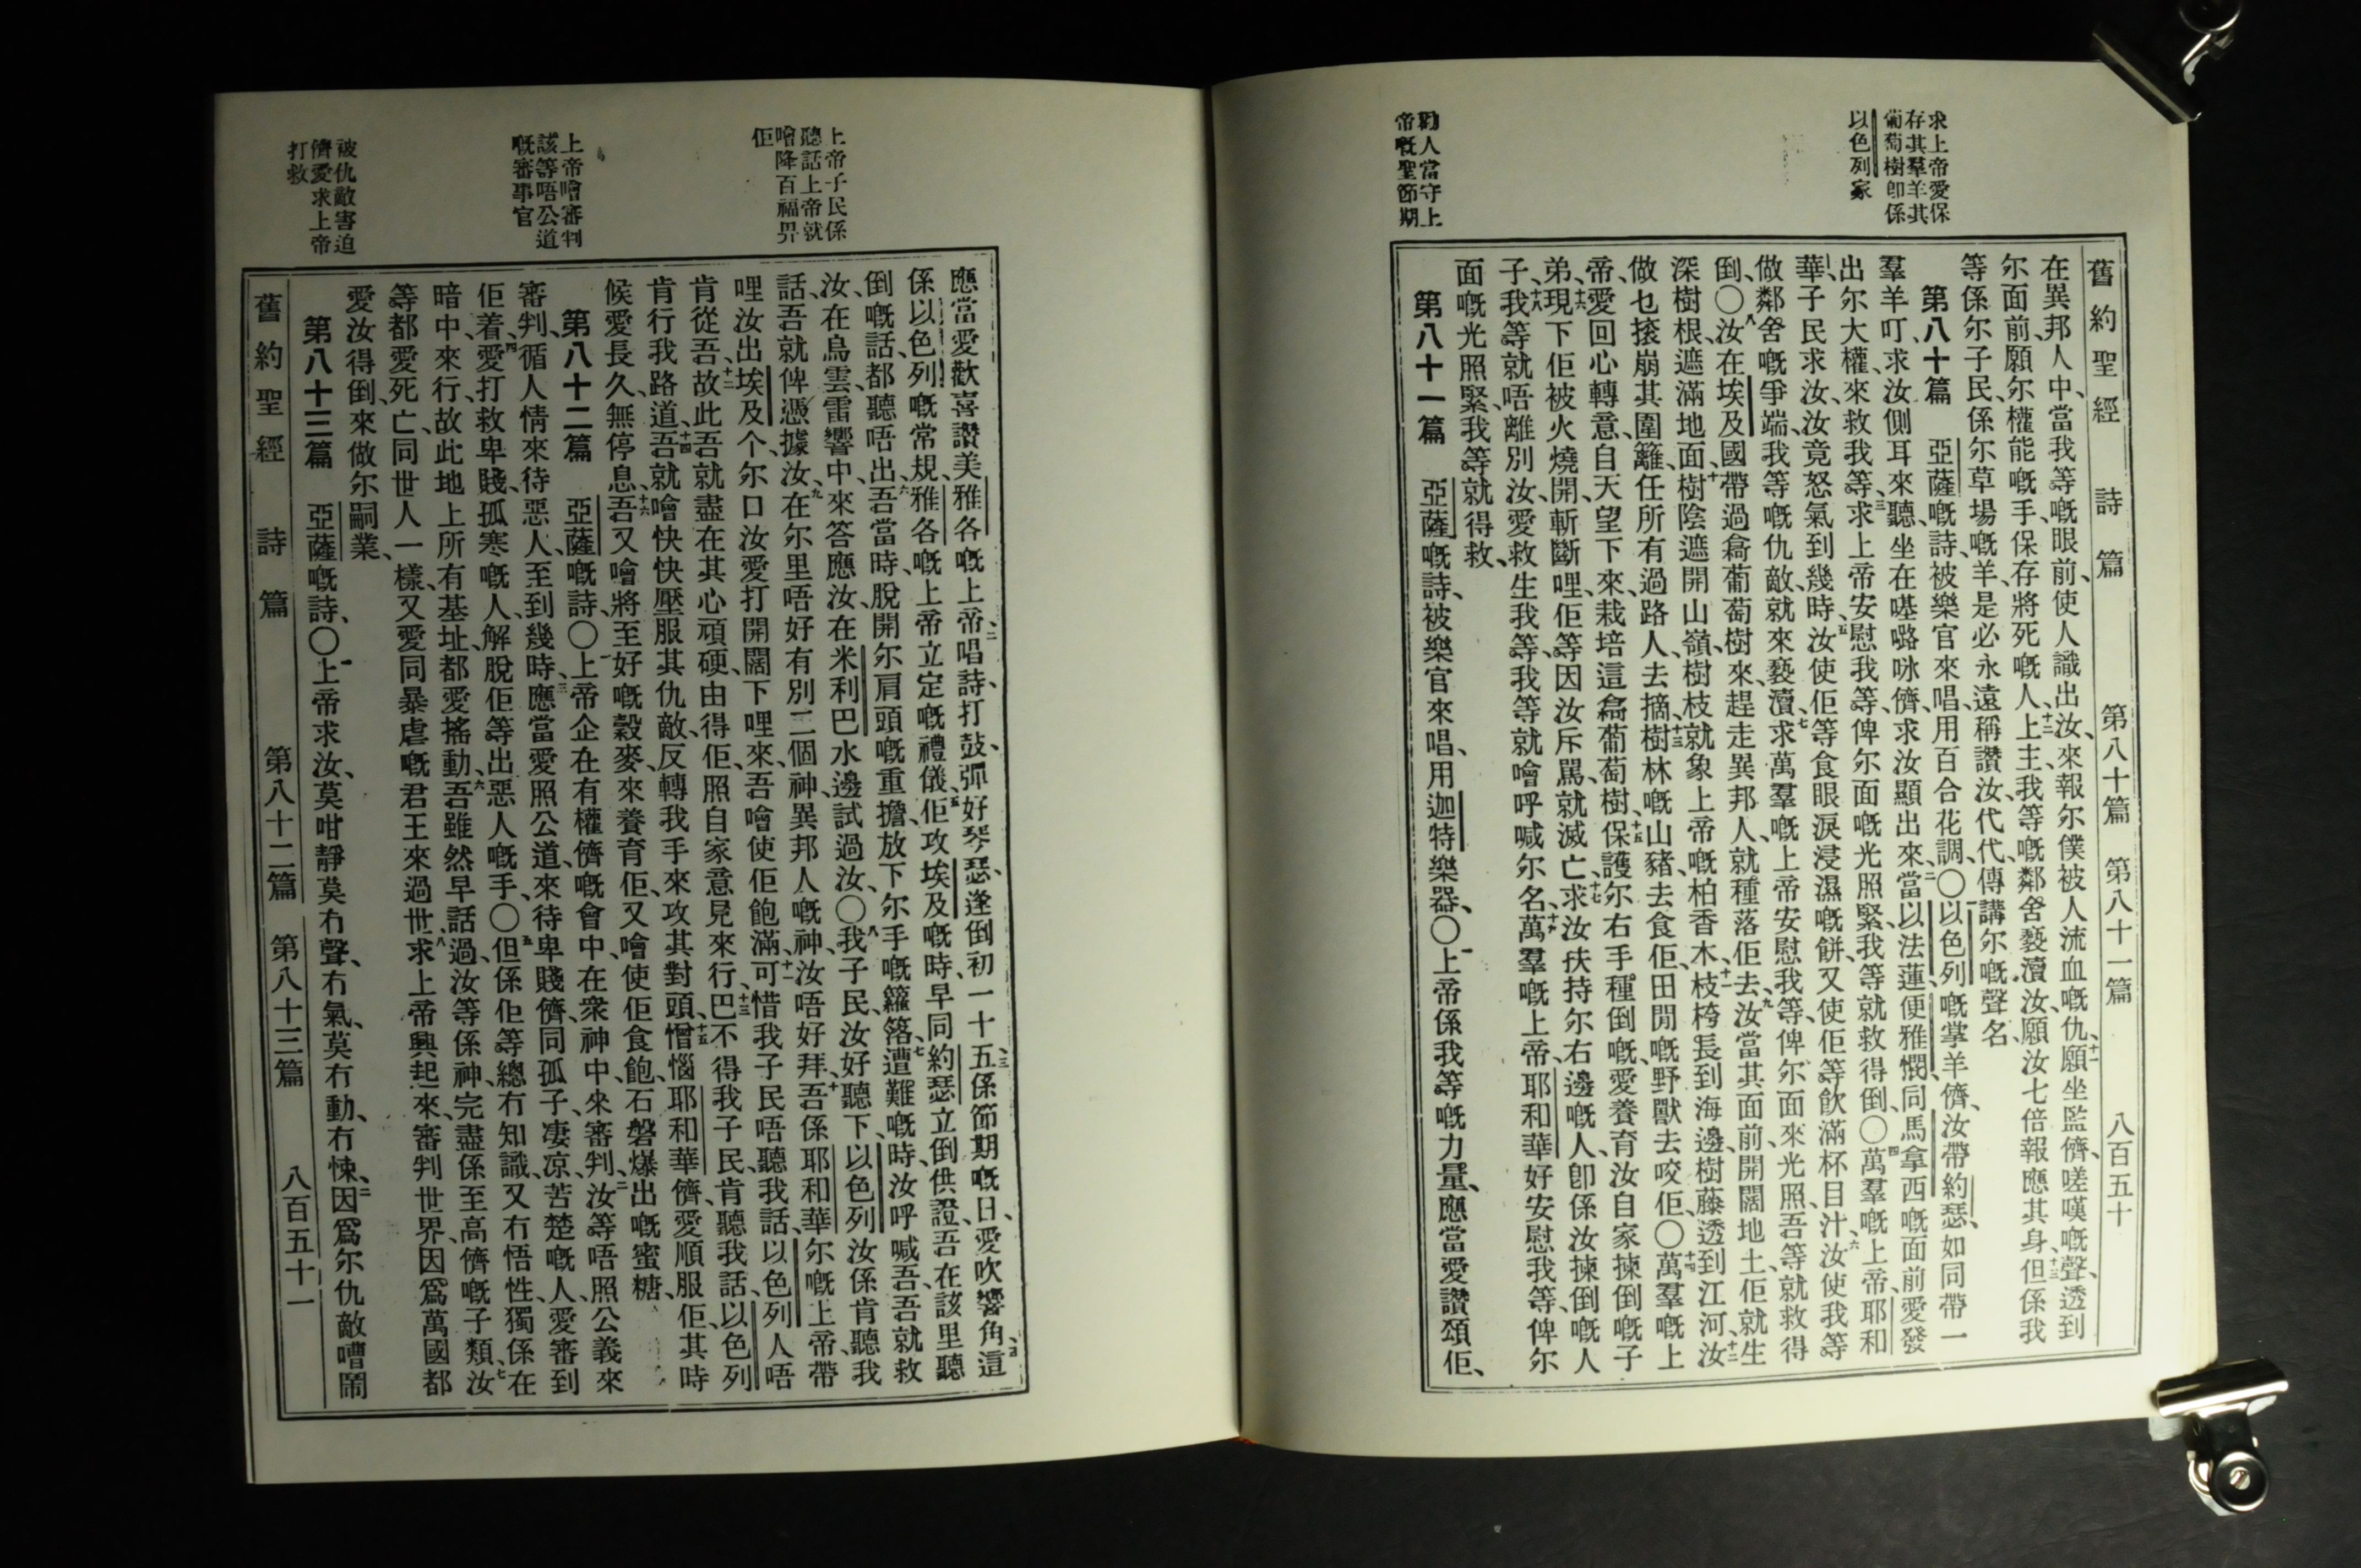 舊約聖經 詩篇 第八十篇 第八十一篇 八百五十
求上帝愛保
存其羣羊其
葡萄樹卽係
以色列家
勸人當守上
帝嘅聖節期
在異邦人中、當我等嘅眼前、使人識出汝、來報尔僕被人流血嘅仇、十一願坐監儕、嗟嘆嘅聲、透到
尔面前、願尔權能嘅手、保存將死嘅人、十二上主、我等嘅鄰舍褻瀆汝、願汝七倍報應其身、十三但係我
等係尔子民、係尔草場嘅羊、是必永遠稱讚汝、代代傳講尔嘅聲名、
第八十篇 亞薩嘅詩、被樂官來唱、用百合花調、〇一以色列嘅掌羊儕、汝帶約瑟、如同帶一
羣羊叮、求汝側耳來聽、坐在𠸄㖨咏儕、求汝顯出來、二當以法蓮、便雅憫、同馬拿西嘅面前、愛發
出尔大權、來救我等、三求上帝安慰我等、俾尔面嘅光照緊、我等就救得倒、〇四萬羣嘅上帝、耶和
華、子民求汝、汝竟怒氣到幾時、五汝使佢等食眼淚浸濕嘅餅、又使佢等飲滿杯目汁、六汝使我等
做鄰舍嘅爭端、我等嘅仇敵、就來褻瀆、七求萬羣嘅上帝安慰我等、俾尔面來光照、吾等就救得
倒、〇八汝在埃及國帶過翕葡萄樹來、趕走異邦人、就種落佢去、九汝當其面前、開闊地土、佢就生
深樹根、遮滿地面、十樹陰遮開山嶺、樹枝就象上帝嘅柏香木枝、十一枝桍長到海邊、樹藤透到江河、十二汝
做乜㨰崩其圍籬、任所有過路人、去摘樹林嘅、十三山豬去食佢、田閒嘅野獸去咬佢、〇十四萬羣嘅上
帝、愛回心轉意、自天望下來、栽培這翕葡萄樹、十五保護尔右手種倒嘅、愛養育汝自家揀倒嘅子
弟、十六現下佢被火燒開、斬斷哩、佢等因汝斥駡、就滅亡、十七求汝扶持尔右邊嘅人、卽係汝揀倒嘅人
子、十八我等就唔離別汝、愛救生我等、我等就噲呼喊尔名、十九萬羣嘅上帝、耶和華好安慰我等、俾尔
面嘅光照緊、我等就得救、
第八十一篇 亞薩嘅詩、被樂官來唱、用迦特樂器、〇一上帝係我等嘅力量、應當愛讚頌佢、
上帝子民係
聽話上帝就
噲降百福畀
佢
上帝噲審判
該等唔公道
嘅審事官
被仇敵害迫
儕愛求上帝
打救
應當愛歡喜讚美雅各嘅上帝、二唱詩、打鼓、彈好琴瑟、三逢倒初一十五、係節期嘅日、愛吹響角、四這
係以色列嘅常規、雅各嘅上帝立定嘅禮儀、五佢攻埃及嘅時、早同約瑟立倒供證、吾在該里聽
倒嘅話、都聽唔出、六吾當時、脫開尔肩頭嘅重擔、放下尔手嘅籮落、七遭難嘅時、汝呼喊吾、吾就救
汝、在烏雲雷響中、來答應汝、在米利巴水邊、試過汝、〇八我子民、汝好聽下、以色列汝係肯聽我
話、吾就俾憑據汝、九在尔里唔好有別二個神、異邦人嘅神、汝唔好拜、十吾係耶和華、尔嘅上帝、帶
哩汝出埃及个、尔口汝愛打開闊下哩來、吾噲使佢飽滿、十一可惜我子民唔聽我話、以色列人唔
肯從吾、十二故此吾就盡在其心頑硬、由得佢照自家意見來行、十三巴不得我子民、肯聽我話、以色列
肯行我路道、十四吾就噲快快壓服其仇敵、反轉我手來攻其對頭、十五憎惱耶和華儕、愛順服佢、其時
候愛長久、無停息、十六吾又噲將至好嘅穀麥、來養育佢、又噲使佢食飽石磐爆出嘅蜜糖、
第八十二篇 亞薩嘅詩、〇一上帝企在有權儕嘅會中、在衆神中來審判、二汝等唔照公義來
審判、循人情來待惡人、至到幾時、三應當愛照公道、來待卑賤儕、同孤子、凄凉、苦楚嘅人、愛審到
佢着、四愛打救卑賤、孤寒嘅人、解脫佢等出惡人嘅手、〇五但係佢等總冇知識、又冇悟性、獨係在
暗中、來行、故此地上所有基址、都愛搖動、六吾雖然早話過、汝等係神、完盡係至高儕嘅子類、七汝
等都愛死亡、同世人一樣、又愛同暴虐嘅君王來過世、八求上帝興起來、審判世界、因爲萬國都
愛汝得倒、來做尔嗣業、
第八十三篇 亞薩嘅詩、〇一上帝求汝、莫咁靜、莫冇聲、冇氣、莫冇動、冇悚、二因爲尔仇敵嘈鬧
舊約聖經 詩篇 第八十二篇 第八十三篇 八百五十一